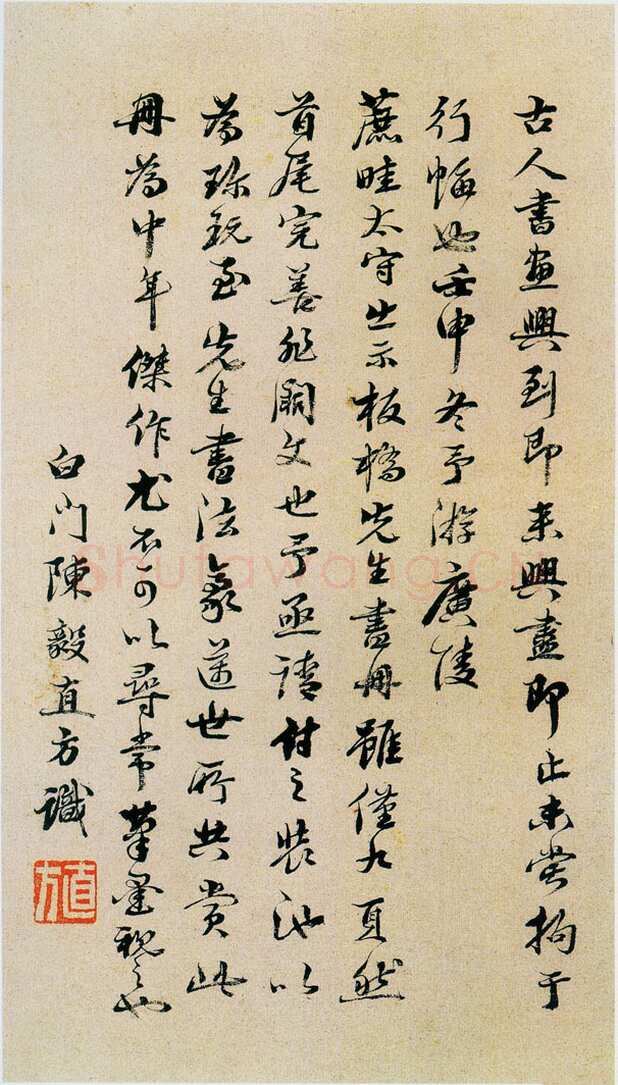 古人書畫興到即来興盡即止未嘗拘于
行幅也壬申冬予游廣陵
蔗畦太守出示板橋先生畫冊雖僅九頁然
首尾完善非闕文也予亟請付之裝池以
為珎玩至先生書法豪邁世所共賞此
冊為中年傑作尤不可以尋常筆墨視之也
白门陳毅直方識
直方
Shufawang.CN